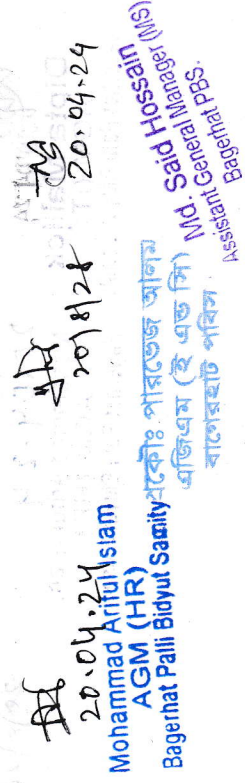 20.04.24
Mohammad Ariful Islam
AGM (HR)
Bagerhat Palli Bidyut Samity
২০/৪/২৪
প্রকৌঃ পারভেজ আলম
এজিএম (ই এন্ড সি)
বাগেরহাট পবিস
20.04.24
Md. Said Hossain
Assistant General Manager (MS)
Bagerhat PBS.